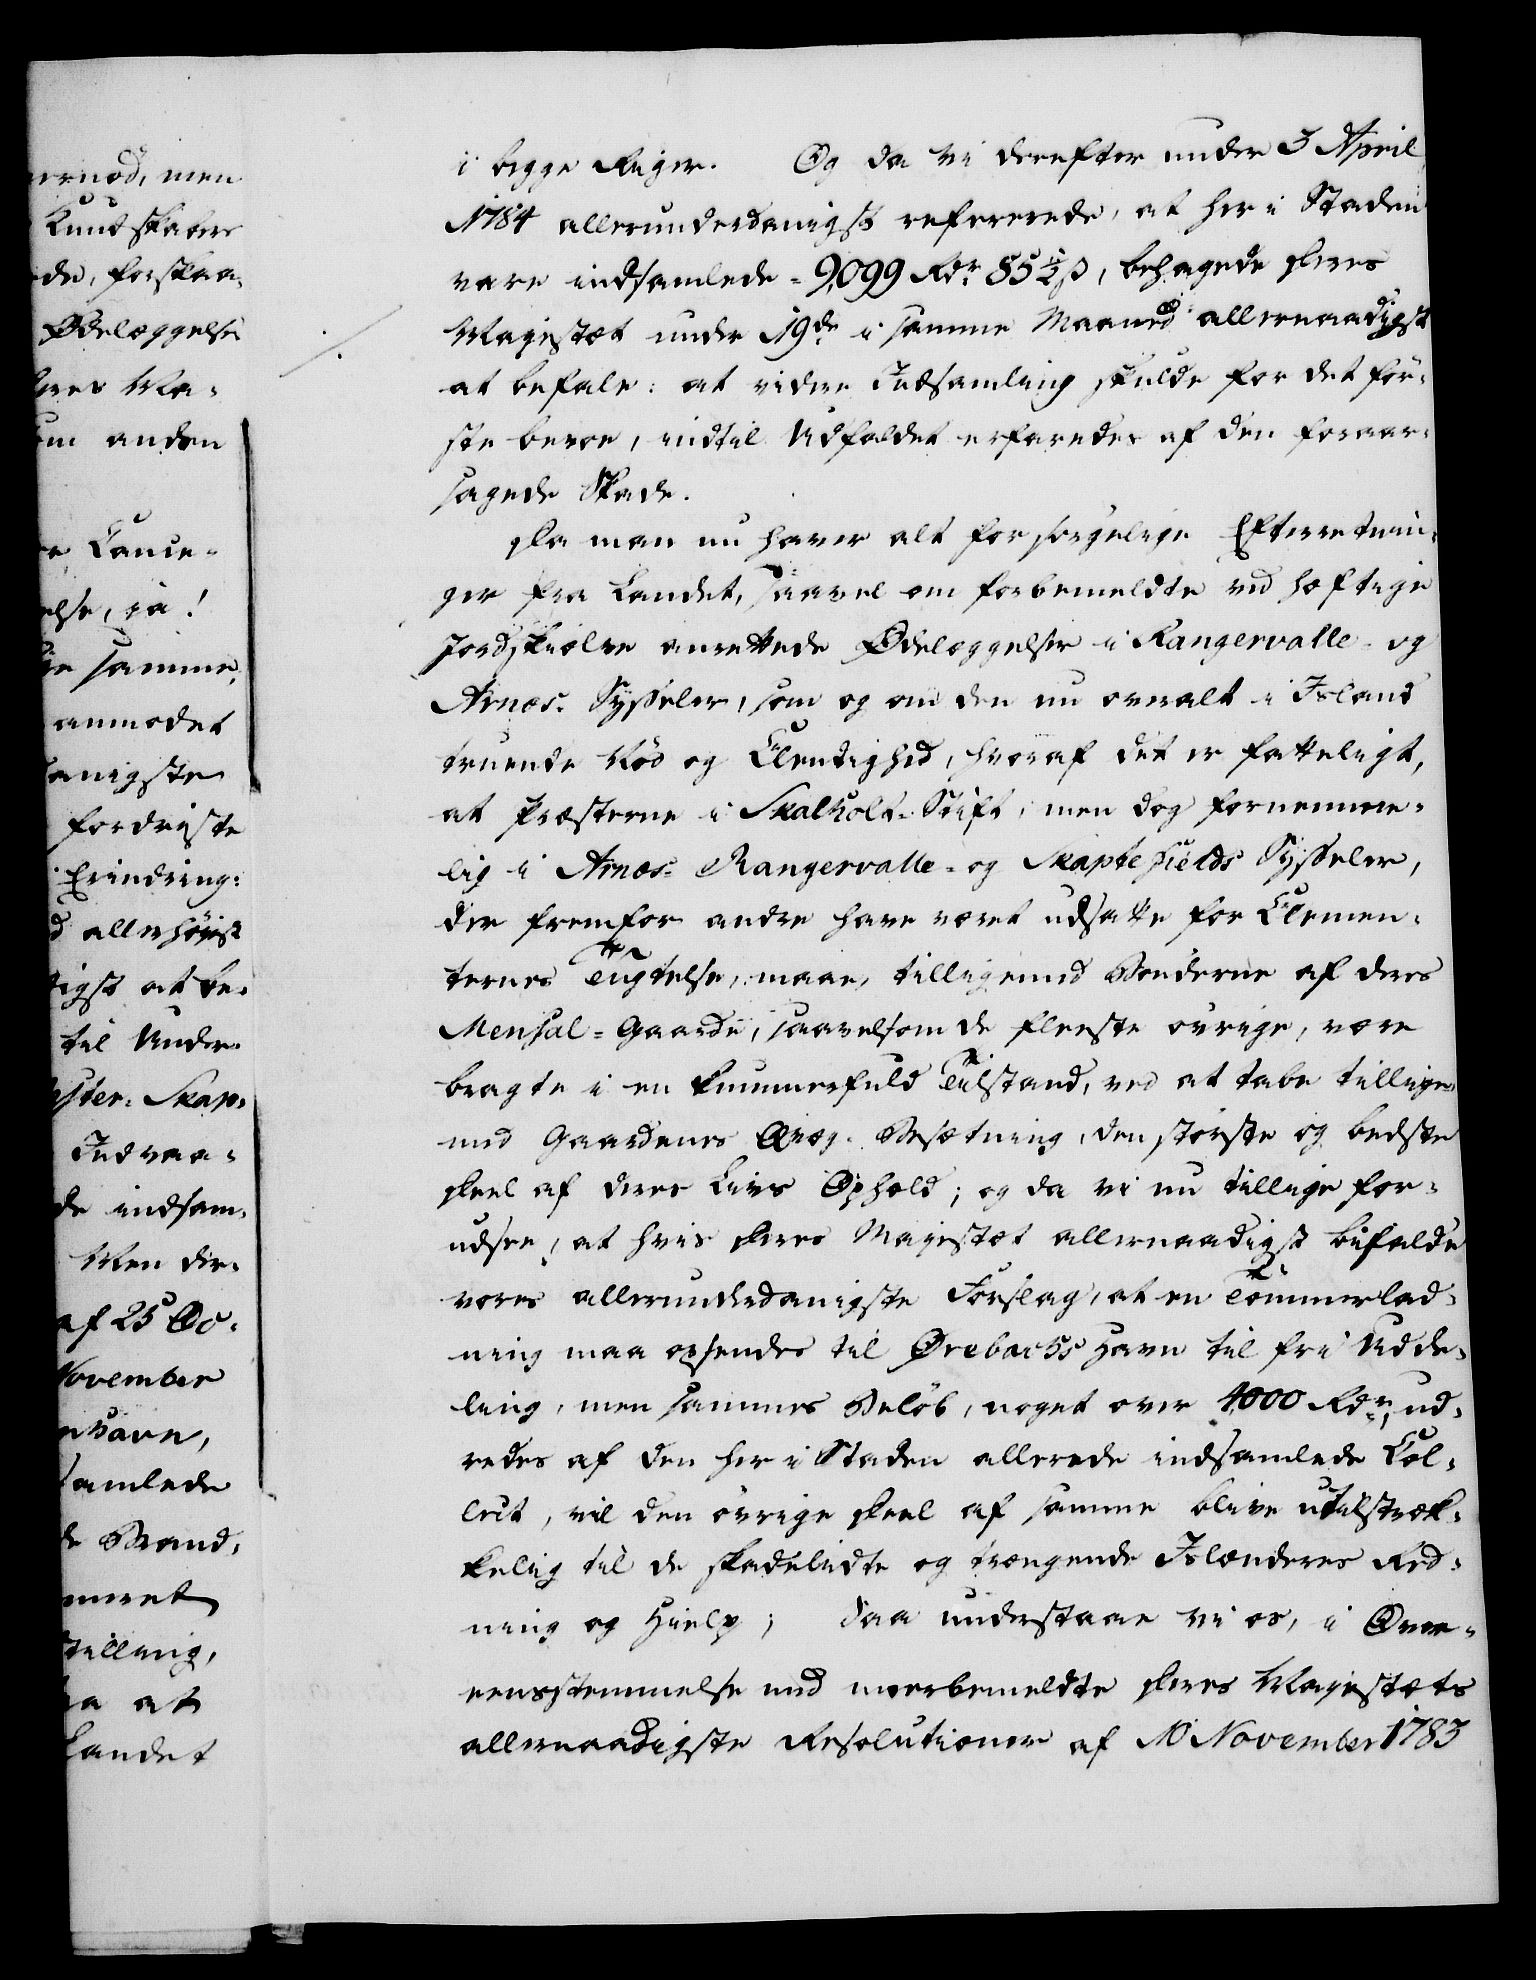 ernød, men
Kundskaber
de, forskaa-
Ødelæggelse
eres Ma-
om anden
re Cance-
else, ja!
ge samme,
anmodet
danigste
fordriste
Erindring-
d allerhøist
digst at be-
til Under-
Vester- Skap-
Indvaa-
de indsam-
Men der-
af 25 Oc-
November
nhavn,
samlede
de Brand-
meret
stilling,
ra at
Landet
i begge Riger. Og da Vi derefter under 3 April
1784 allerunderdanigst refererede, at her i Staden
vare indsamlede = 9,099 Rdr 85 1/2 ß, behagede Deres
Majestæt under 19de i samme Maaned allernaadigst
at befale: at videre Indsamling skulde for det før-
ste beroe, indtil Udfaldet erfaredes af den foraar-
sagede Skade.
Da man nu haver alt for sørgelige Efterretnin-
ger fra Landet, saavel om forbemeldte ved heftige
Jordskielve anrettede Ødelæggelser i Rangervalle- og
Arnæs- Sysseler, som og om den nu overalt i Island
truende Nød og Elendighed, hvoraf det er fatteligt,
at Præsterne i Skalholt- Stift, men dog fornemme-
lig i Arnæs- Rangervalle- og Skaptefields Sysseler,
der fremfor andre have været udsatte for Elemen-
ternes Tugtelse, maae, tilligemed Bønderne af deres
Mensal-Gaarde, saavelsom de fleeste øvrige, være
bragte i en kummerfuld Tilstand, ved at tabe tillige-
med Gaardenes Qvæg- Besætning, den største og bedste
Deel af deres Livs Ophold; og da vi nu tillige for-
udsee, at hvis Deres Majestæt allernaadigst bifalde
vores allerunderdanigste Forslag, at en Tømmerlad-
ning maa opsendes til Ørebachs Havn til fri Udde-
ling, men sammes Beløb, noget over 4000 Rdr, ud-
redes af den her i Staden allerede indsamlede Col-
lect, vil den øvrige Deel af samme blive utilstræk-
kelig til de skadelidte og trængende Islænderes Red-
ning og Hielp; Saa understaae Vi os, i Over-
eensstemmelse med meerbemeldte Deres Majestæts
allernaadigste Resolutioner af 10 November 1783